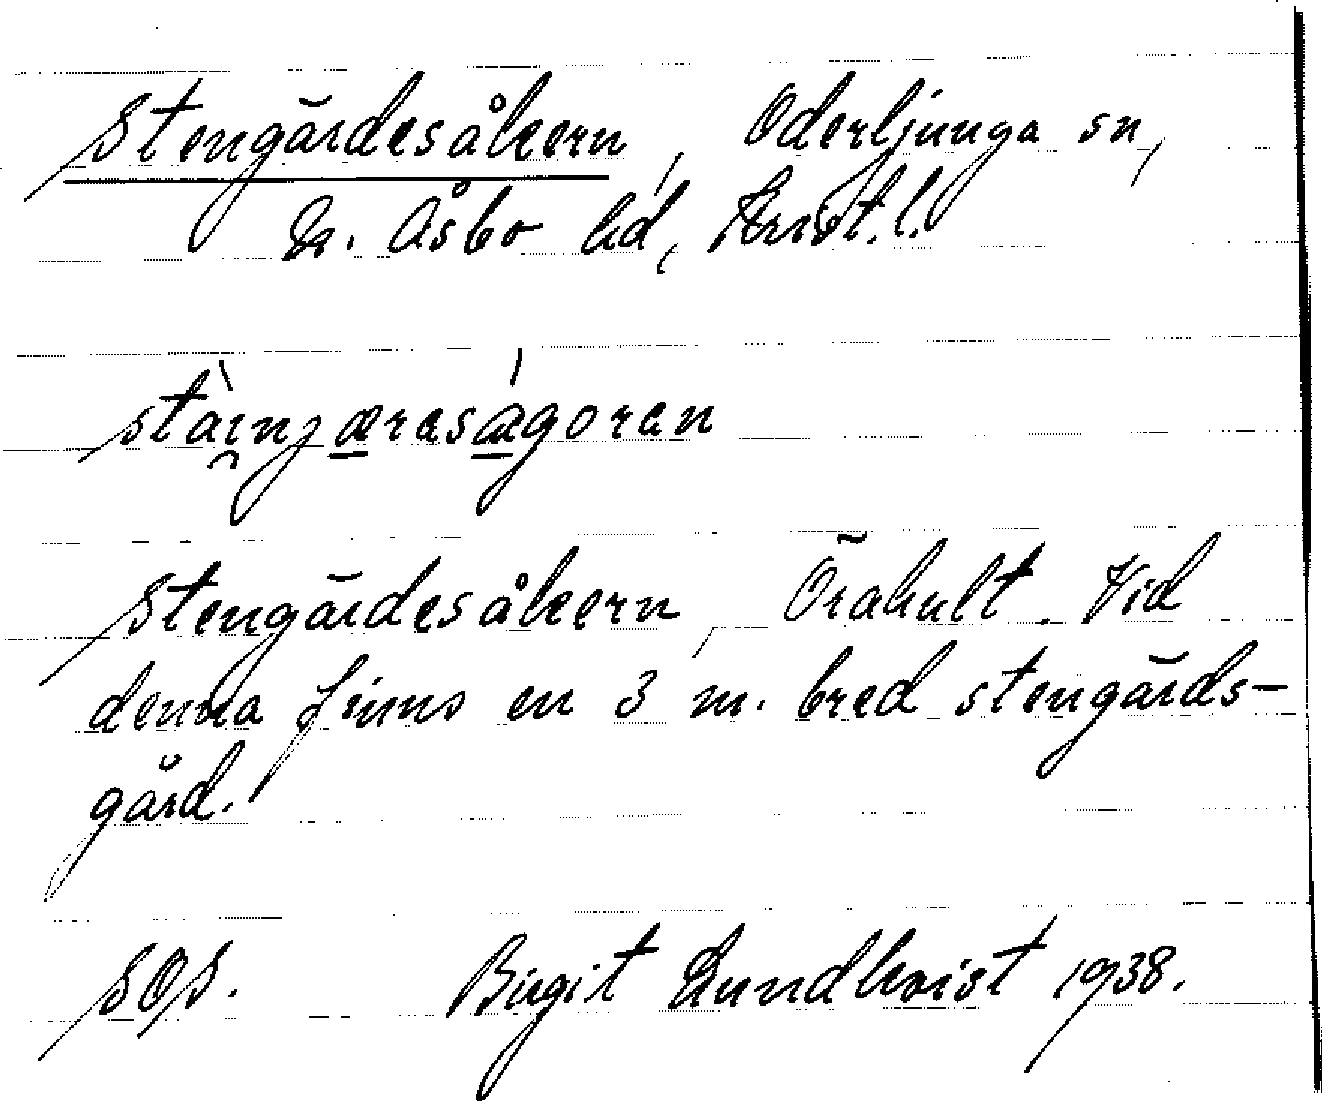 Stengärdesåkern, Oderljunga sn,
N. Åsbo hd, Krist. l.
stàɪ̯njæresǽgoren
Stengärdesåkern, Örahult. Vid
denna finns en 3 m. bred stengärds-
gård.
SOS. Birgit Lundkvist 1938.